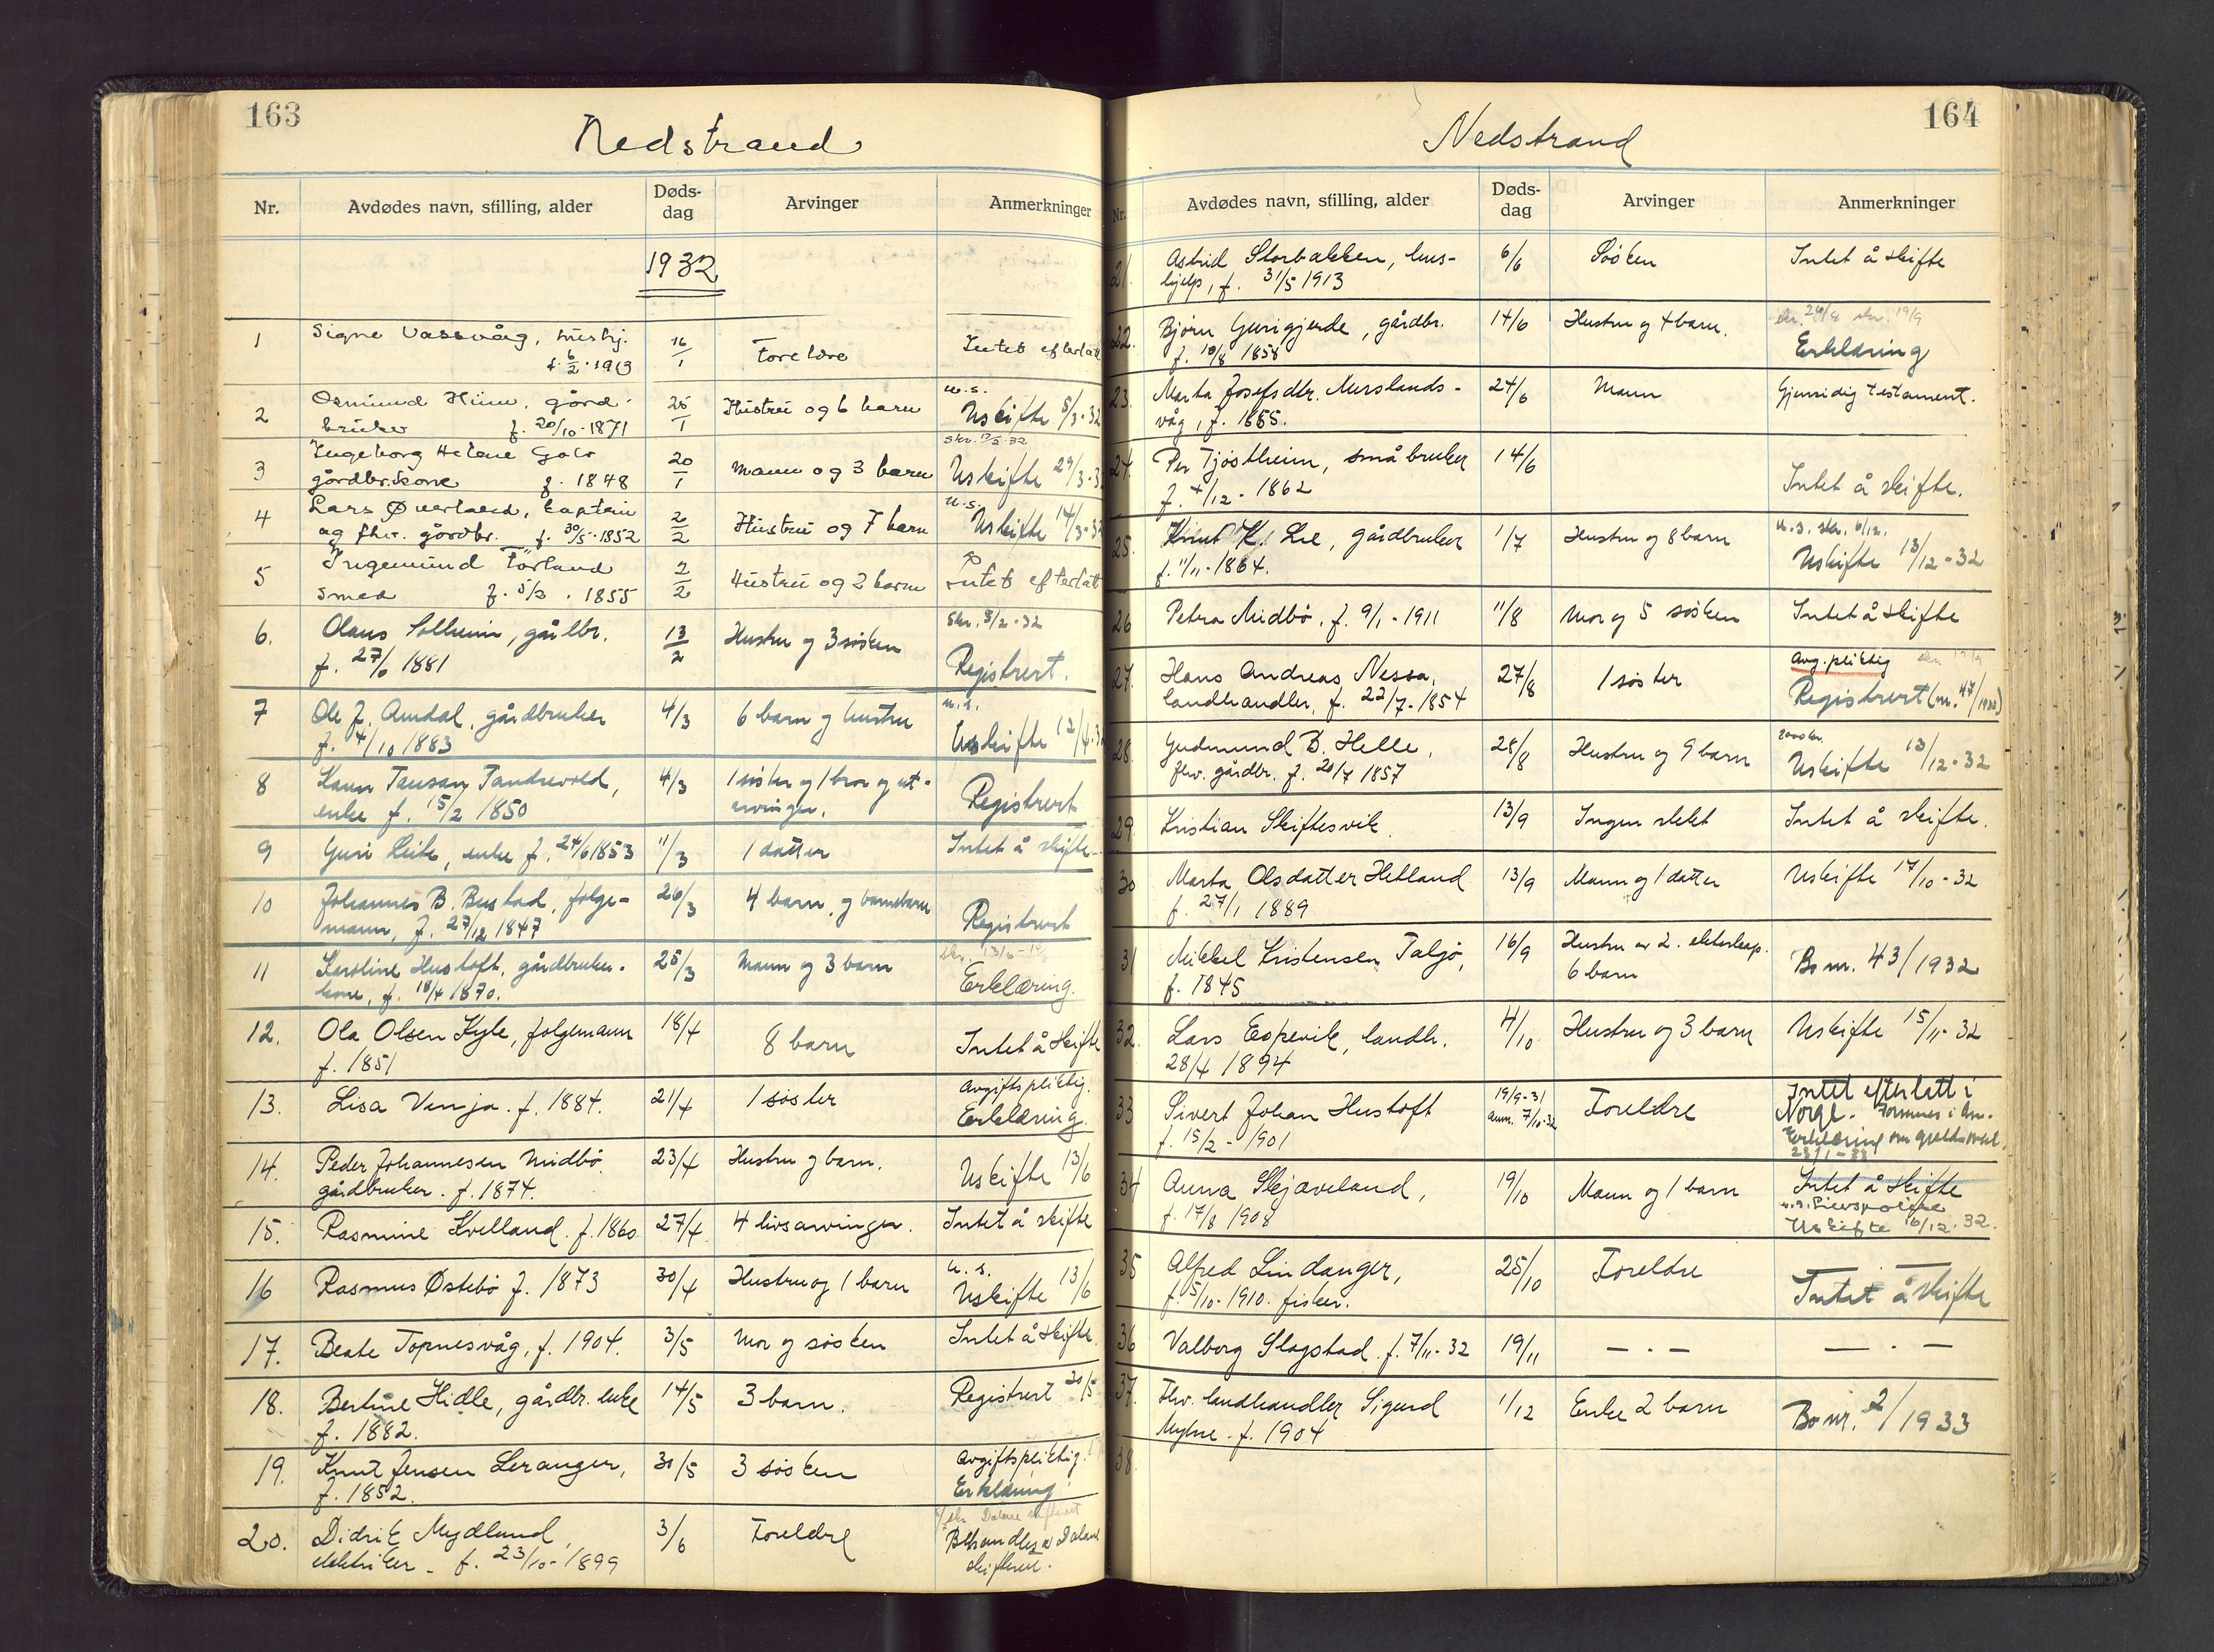 163
Nedstrand
Nr. Avdødes navn, stilling, alder Døds-dag Arvinger Anmerkninger
1932
1 Signe Vassvåg, hushj. 16/1 Foreldre Intet efterlatt
f. 6/2 . 1913
2 Osmund Hiim, gård- 25/1 Hustru og 6 barn u.s. Uskifte 5/3-32
bruker f. 20/10-1871
3 Ingeborg Helene 20/1 Mann og 3 barn Uskifte 29/3-3
gårdbr.kone f. 1848
4 Lars Øverland, kaptein 2/2 Hustru og 7 barn u.s. Uskifte 14/3-32
og fhv. gårdbr. f. 30/5-1852
5 Ingemund Førland 2/2 Hustru og 2 barn Intet efterlatt
smed f. 5/3 . 1855
6. Olaus Solheim, gårdbr. 13/2 Hustru og 3 søsken Registrert.
f. 27/6 1881
7 Ole J. Amdal, gårdbruker 4/3 6 barn og hustru u.s. Uskifte 12/4-3
f. 4/10 1883
8 Tandrevold, 4/3 1 søster og 1 bror og ut- Registrert
enke f. 15/2 1850 arvinger.
9 Guri Leite, enke f. 24/6 1853 11/3 1 datter Intet å skifte
10 Johannes B. Bustad, følge- 26/3 4 barn og barnebarn Registrert
mann, f. 27/12 1847
11 Karoline Hustoft, gårdbruker- 25/3 Mann og 3 barn Erklæring.
kone, f. 18/4 1870.
12. Ola Olsen Kyle, følgemann 18/4 8 barn Intet å skifte
f. 1851
13. Lisa Vinja. f. 1884. 21/4 1 søster Avgiftspliktig.
Erklæring.
14. Peder Johannesen Midbø. 23/4 Hustru og barn. Uskifte 13/6
gårdbruker. f. 1874.
15. Rasmine Kvelland. f. 1860 27/4 4 livsarvinger. Intet å skifte
16 Rasmus Østebø f. 1873 30/4 Hustru og 1 barn u.s. Uskifte 13/6
17. Beate Topnesvåg, f. 1904. 3/5 Mor og søsken Intet å skifte.
18. Bertine Hidle, gårdbr. enke 14/5 3 barn. Registrert 20/5
f. 1882.
19. Knut Jensen Leranger, 30/5 3 søsken Avgiftspliktig.
f. 1852. Erklæring
20. Didrik Mydland, 3/6 Foreldre Behandles av Dalane
elektriker - f. 23/10-1899 skifterett.
164
Nedstrand
Nr. Avdødes navn, stilling, alder Døds-dag Arvinger Anmerkninger
21. Astrid Storbakken, hus- 6/6 Søsken Intet å skifte
hjelp, f. 31/5 1913
22. Bjørn Gurigjerde, gårdbr. 14/6 Hustru og 4 barn. Erklæring
f. 10/8 1858
23. Marta Josefsdtr. Nerslands- 24/6 Mann Gjensidig testament.
våg, f. 1855.
24. Per Tjøstheim, småbruker 14/6 Intet å skifte.
f. 4/12 - 1862
25. Knut K. Lie, gårdbruker 1/7 Hustru og 8 barn u.s. skr. 6/12.
f. 11/11-1864. Uskifte 13/12-32
26 Petra Midbø. f. 9/1-1911 11/8 Mor og 5 søsken Intet å skifte
27. Hans Andreas Nessa, 27/8 1 søster Avg.pliktig
landhandler, f. 22/7-1854 Registrert (nr. 47/1932)
28. Gudmund D. Helle, 28/8 Hustru og 9 barn Uskifte 13/12-32
fhv. gårdbr. f. 20/7 1857
29. Kristian Skiftesvik. 13/9 Ingen slekt Intet å skifte.
30 Marta Olsdatter Hetland 13/9 Mann og 1 datter Uskifte 17/10-32
f. 27/1 1889
31 Mikkel Kristensen Talgø, 16/9 Hustru av 2. ekteskap. Bo nr. 43/1932
f. 1845 6 barn
32. Lars Espevik, landh. 4/10 Hustru og 3 barn Uskifte 15/11-32
28/4 1894
33 Sivert Johan Hustoft 19/9-31 Foreldre Intet efterlatt i
f. 15/2 - 1901 anm. 7/10-32 Norge.
Erklæring om
23/1-33
34 Anna Skjæveland, 19/10 Mann og 1 barn Intet å skifte
f. 17/8 1908 u.s. Livspolise
Uskifte 16/12-32.
35 Alfred Lindanger, 25/10 Foreldre Intet å skifte
f. 15/10-1910. fisker.
36 Valborg Slogstad f. 7/11-32 19/11 — . — — . —
37. Fhv. landhandler Sigurd 1/12 Enke 2 barn Bo nr. 2/1933
Myhre. f. 1904
38.